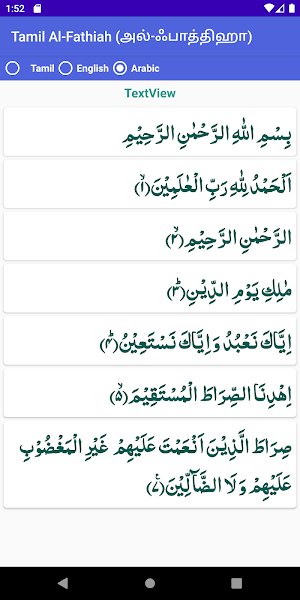 1:52
Tamil Al-Fathiah (அல்-ஃபாத்திஹா)
Tamil English Arabic
TextView
بِسْمِ اللهِ الرَّحْمٰنِ الرَّحِيْمِ
اَلْحَمْدُ لِلّٰهِ رَبِّ الْعٰلَمِيْنَ ۙ‏﴿۱﴾
الرَّحْمٰنِ الرَّحِيْمِ ۙ‏﴿۲﴾
مٰلِكِ يَوْمِ الدِّيْنِ ؕ‏﴿۳﴾
اِيَّاكَ نَعْبُدُ وَاِيَّاكَ نَسْتَعِيْنُ ؕ‏﴿۴﴾
اِهْدِنَا الصِّرَاطَ الْمُسْتَقِيْمَ ۙ‏﴿۵﴾
صِرَاطَ الَّذِيْنَ اَنْعَمْتَ عَلَيْهِمْ غَيْرِ الْمَغْضُوْبِ
عَلَيْهِمْ وَلَا الضَّآلِّيْنَ‏﴿۷﴾